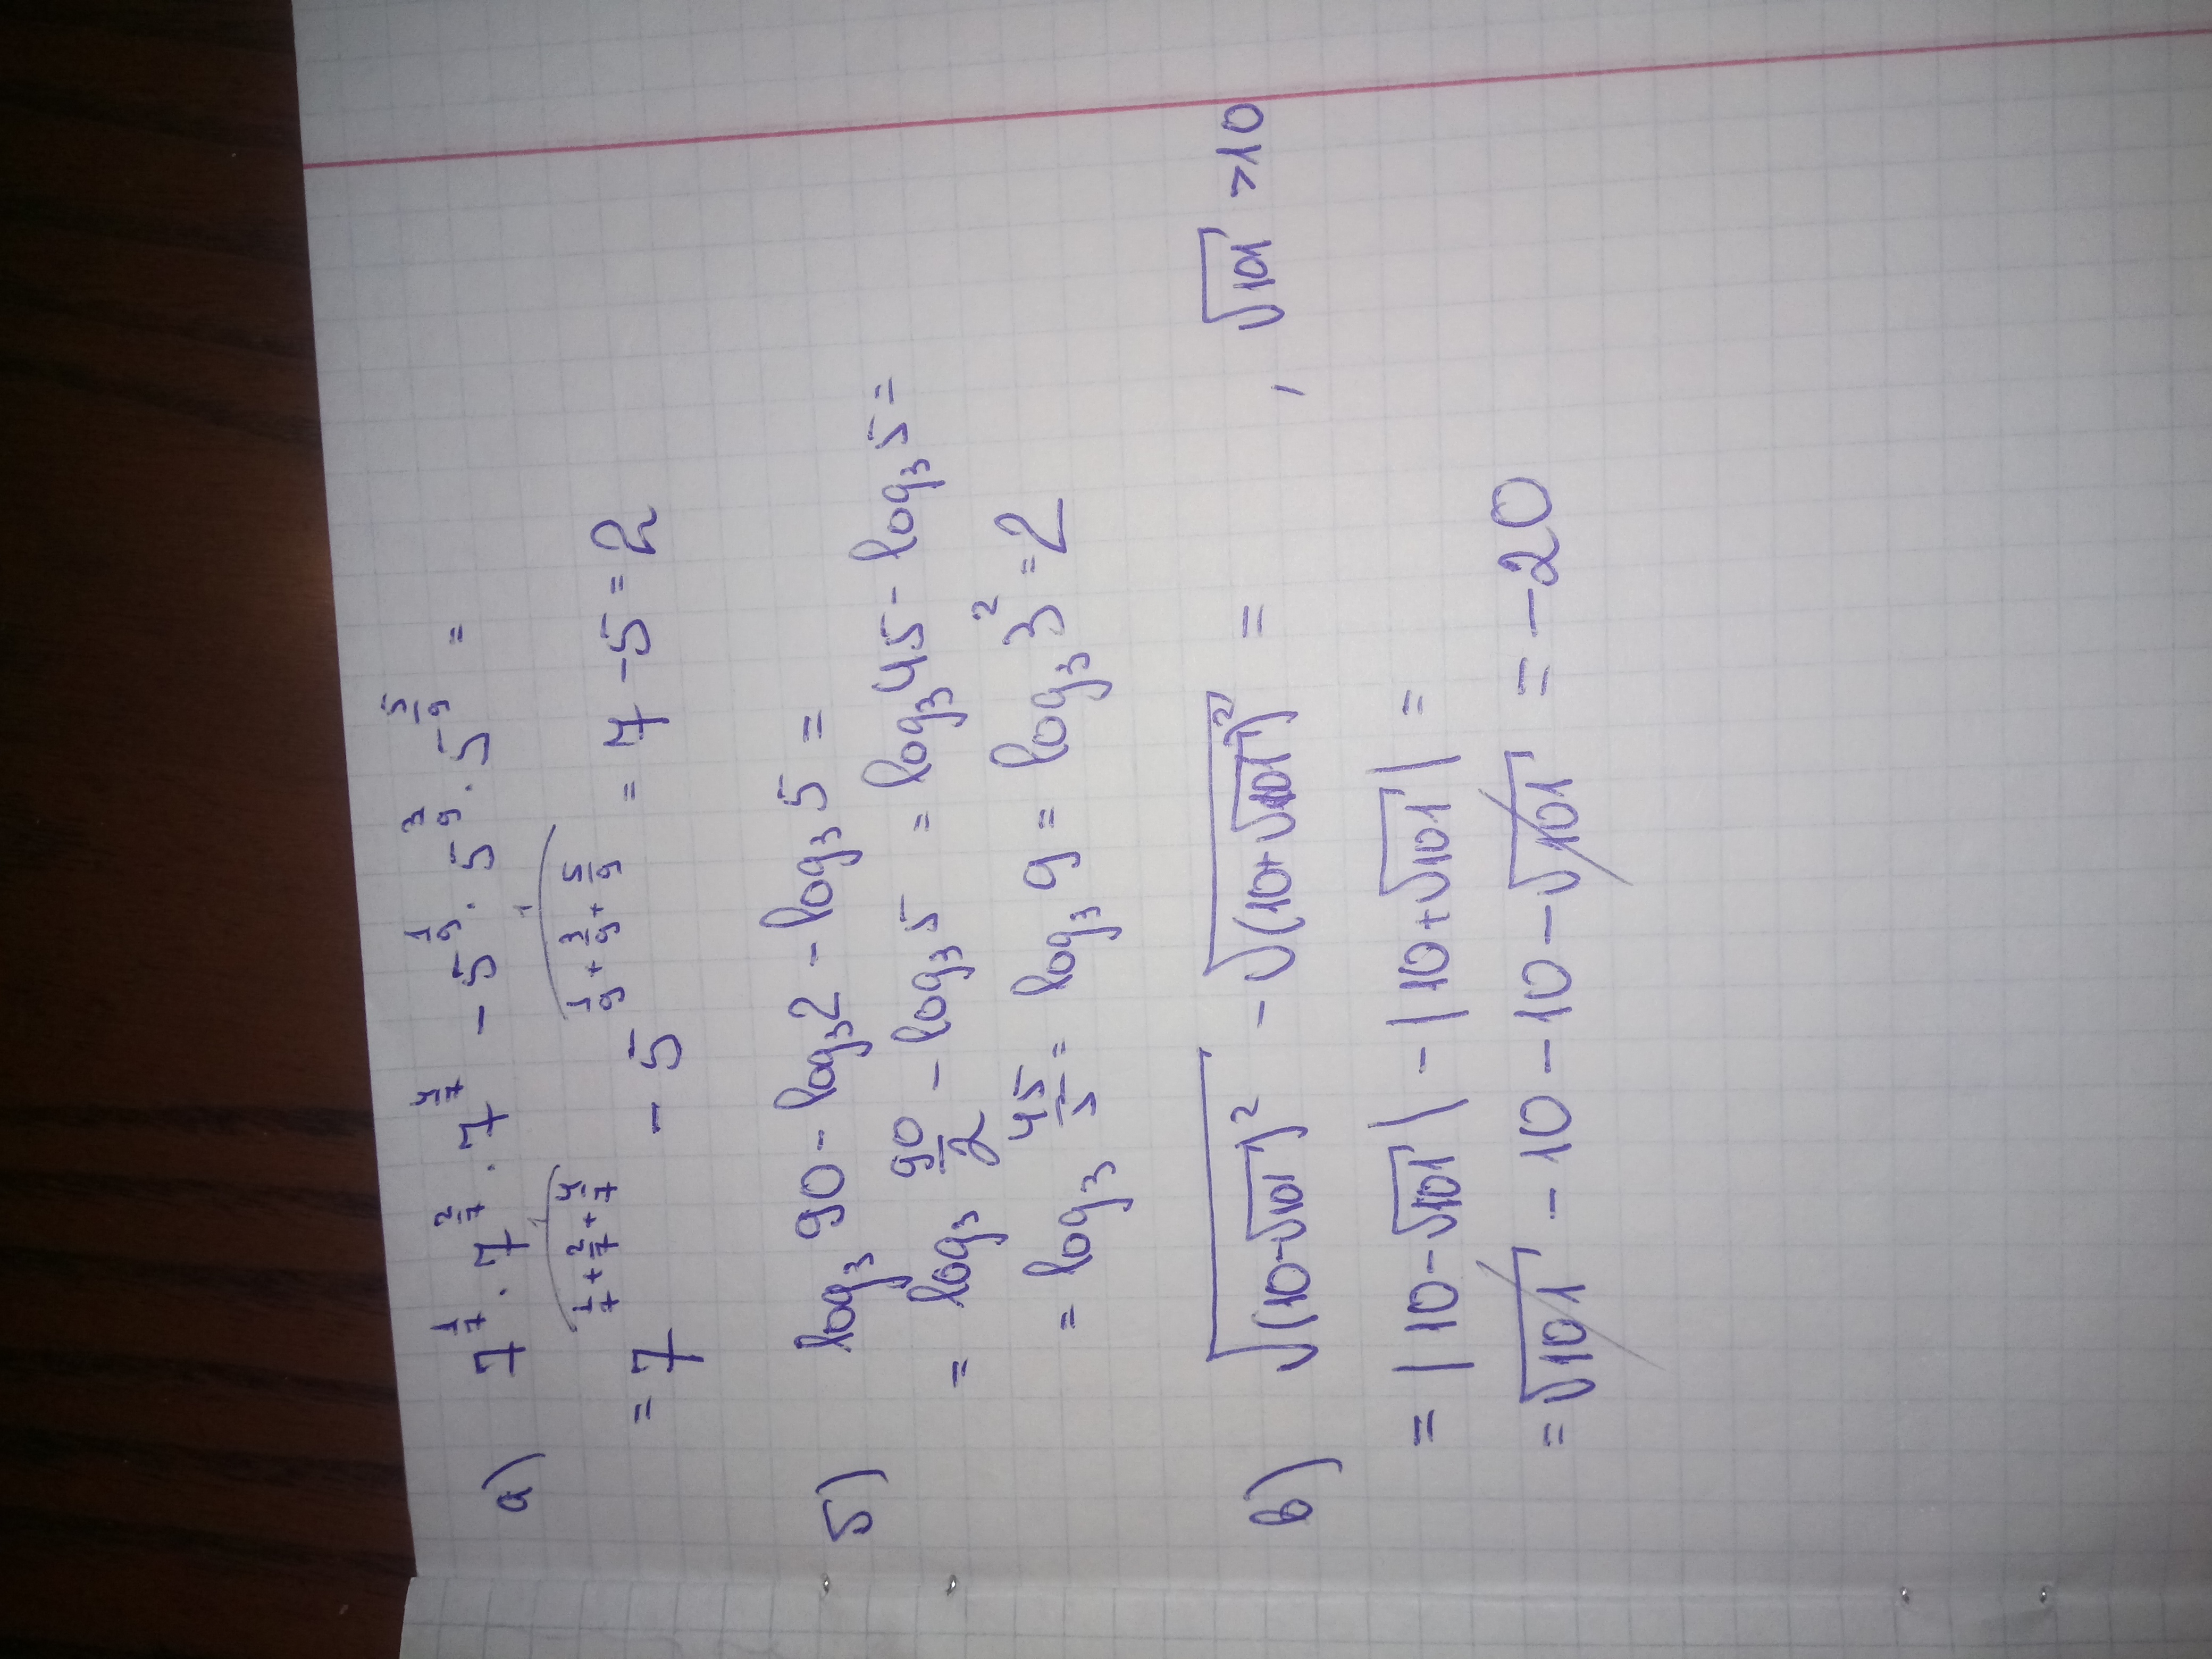 а) 7^(1/7) · 7^(2/7) · 7^(4/7) - 5^(1/9) · 5^(3/9) · 5^(5/9) =
= 7^(1/7 + 2/7 + 4/7) - 5^(1/9 + 3/9 + 5/9) = 7 - 5 = 2
б) log₃ 90 - log₃ 2 - log₃ 5 =
= log₃ 90/2 - log₃ 5 = log₃ 45 - log₃ 5 =
= log₃ 45/5 = log₃ 9 = log₃ 3² = 2
в) √(10-√101)² - √(10+√101)² = , √101 > 10
= |10-√101| - |10+√101| =
= √101 - 10 - 10 - √101 = -20